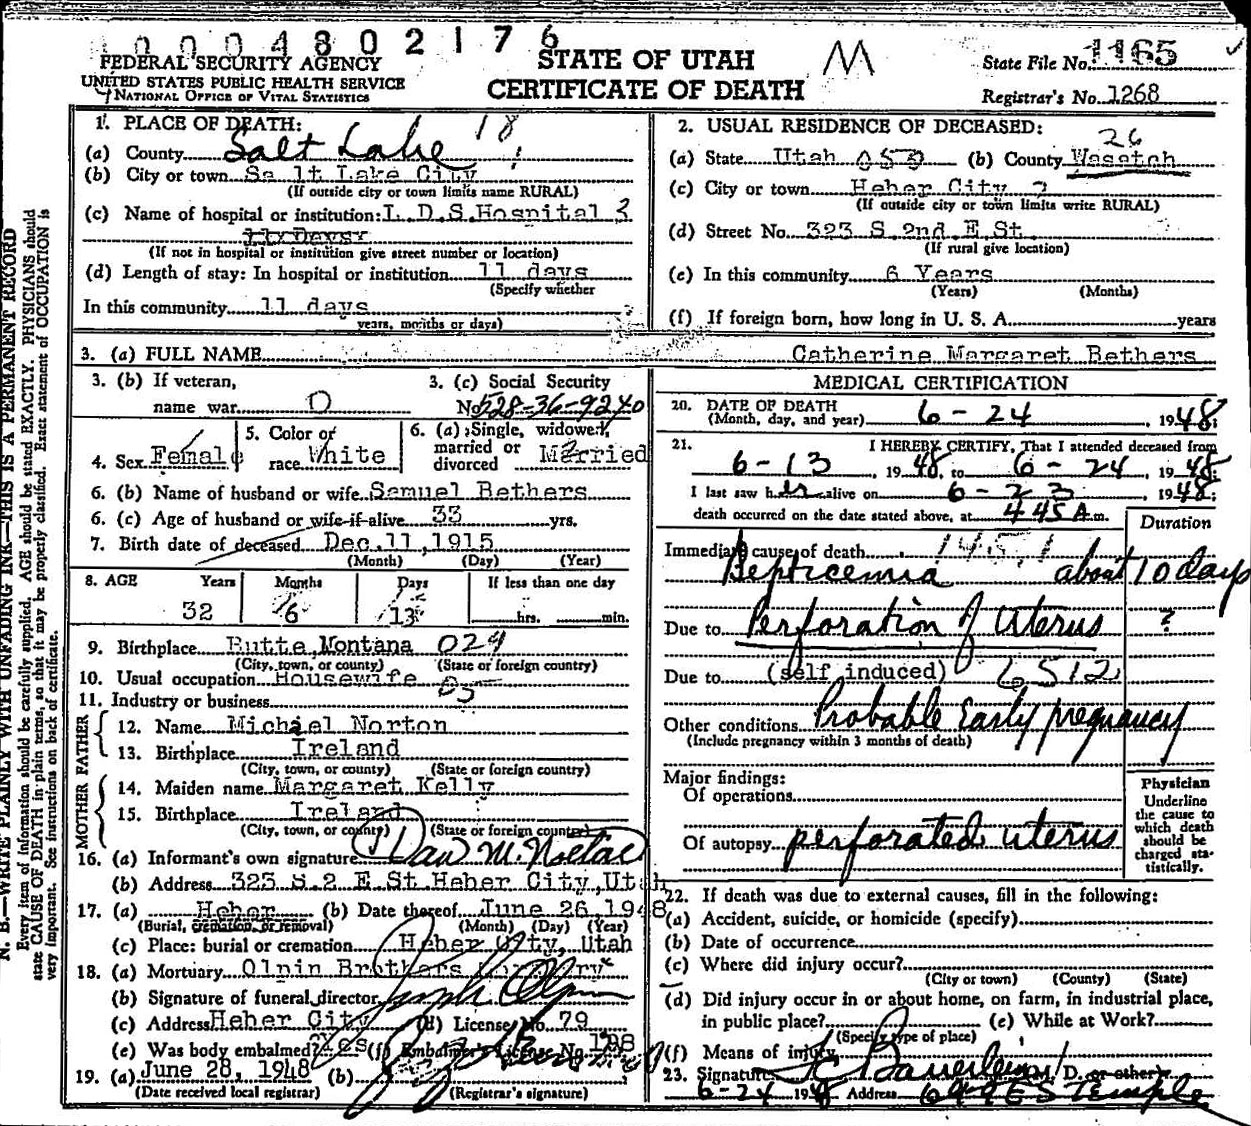 0004802176
FEDERAL SECURITY AGENCY
UNITED STATES PUBLIC HEALTH SERVICE
NATIONAL OFFICE OF VITAL STATISTICS
STATE OF UTAH
CERTIFICATE OF DEATH
M
State File No. 1165
Registrar's No. 1268
N. B.—WRITE PLAINLY WITH UNFADING INK—THIS IS A PERMANENT RECORD
Every item of information should be carefully supplied. AGE should be stated EXACTLY. PHYSICIANS should
state CAUSE OF DEATH in plain terms, so that it may be properly classified. Exact statement of OCCUPATION is
very important. See instructions on back of certificate.
1. PLACE OF DEATH: 18
(a) County Salt Lake
(b) City or town Salt Lake City
(If outside city or town limits name RURAL)
(c) Name of hospital or institution: L.D.S. Hospital 3
(If not in hospital or institution give street number or location)
(d) Length of stay: In hospital or institution 11 days
(Specify whether
In this community 11 days
years, months or days)
2. USUAL RESIDENCE OF DECEASED:
26
(a) State Utah 050 (b) County Wasatch
(c) City or town Heber City 2
(If outside city or town limits write RURAL)
(d) Street No. 323 S. 2nd E St.
(If rural give location)
(e) In this community 6 Years
(Years) (Months)
(f) If foreign born, how long in U. S. A. years
3. (a) FULL NAME Catherine Margaret Bethers
3. (b) If veteran,
name war O
3. (c) Social Security
No. 528-36-9240
4. Sex Female
5. Color or
race White
6. (a) Single, widowed,
married or
divorced Married
6. (b) Name of husband or wife Samuel Bethers
6. (c) Age of husband or wife if alive 33 yrs.
7. Birth date of deceased Dec. 11, 1915
(Month) (Day) (Year)
8. AGE Years Months Days If less than one day
32 6 13 hrs. min.
9. Birthplace Butte Montana 024
(City, town, or county) (State or foreign country)
10. Usual occupation Housewife
11. Industry or business
FATHER
12. Name Michael Norton
13. Birthplace Ireland
(City, town, or county) (State or foreign country)
MOTHER
14. Maiden name Margaret Kelly
15. Birthplace Ireland
(City, town, or county) (State or foreign country)
16. (a) Informant's own signature
(b) Address 323 S. 2 E. St Heber City, Utah
17. (a) Heber (b) Date thereof June 26, 1948
(Burial, cremation, or removal) (Month) (Day) (Year)
(c) Place: burial or cremation Heber City, Utah
18. (a) Mortuary Olpin Brothers Mortuary
(b) Signature of funeral director
(c) Address Heber City (d) License No. 79
(e) Was body embalmed? Yes (f) Embalmer's License No. 198
19. (a) June 28, 1948 (b)
(Date received local registrar) (Registrar's signature)
MEDICAL CERTIFICATION
20. DATE OF DEATH
(Month, day, and year) 6-24, 1948;
21. I HEREBY CERTIFY, That I attended deceased from
6-13 1948, to 6-24, 1948;
I last saw her alive on 6-23, 1948;
death occurred on the date stated above, at 4 45 A m.
Duration
Immediate cause of death
Septicemia about 10 days
Due to Perforation of Uterus ?
Due to (self induced) 6512
Other conditions Probable Early pregnancy
(Include pregnancy within 3 months of death)
Major findings:
Of operations
Of autopsy perforated uterus
Physician
Underline
the cause to
which death
should be
charged sta-
tistically.
22. If death was due to external causes, fill in the following:
(a) Accident, suicide, or homicide (specify)
(b) Date of occurrence
(c) Where did injury occur?
(City or town) (County) (State)
(d) Did injury occur in or about home, on farm, in industrial place,
in public place? (e) While at Work?
(Specify type of place)
(f) Means of injury
23. Signature M. D. or other
6-24 1948 Address E S Temple